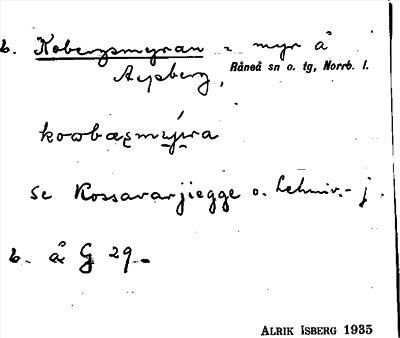 b. Kobergsmyran = myr å
Aspberg, Råneå sn o. tg, Norrb. l.
kowbæʂmy̌ra
se Kossavarjiegge o. Lehmiv.- j.
b. å G 29.-
ALRIK ISBERG 1935